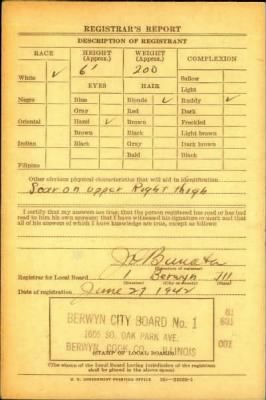 REGISTRAR'S REPORT
DESCRIPTION OF REGISTRANT
RACE HEIGHT (Approx.) WEIGHT (Approx.) COMPLEXION
White ✓ 6' 200 Sallow
EYES HAIR Light
Negro Blue Blonde ✓ Ruddy ✓
Gray Red Dark
Oriental Hazel ✓ Brown Freckled
Brown Black Light brown
Indian Black Gray Dark brown
Bald Black
Filipino
Other obvious physical characteristics that will aid in identification.
Scar on upper Right thigh
I certify that my answers are true; that the person registered has read or has had
read to him his own answers; that I have witnessed his signature or mark and that
all of his answers of which I have knowledge are true, except as follows:
(Signature of registrar)
Registrar for Local Board 1 Berwyn Ill
(Number) (City or county) (State)
Date of registration June 27 1942
BERWYN CITY BOARD No. 1
1605 SO. OAK PARK AVE.
BERWYN, COOK CO. ILLINOIS
(STAMP OF LOCAL BOARD)
(The stamp of the Local Board having jurisdiction of the registrant
shall be placed in the above space)
U. S. GOVERNMENT PRINTING OFFICE